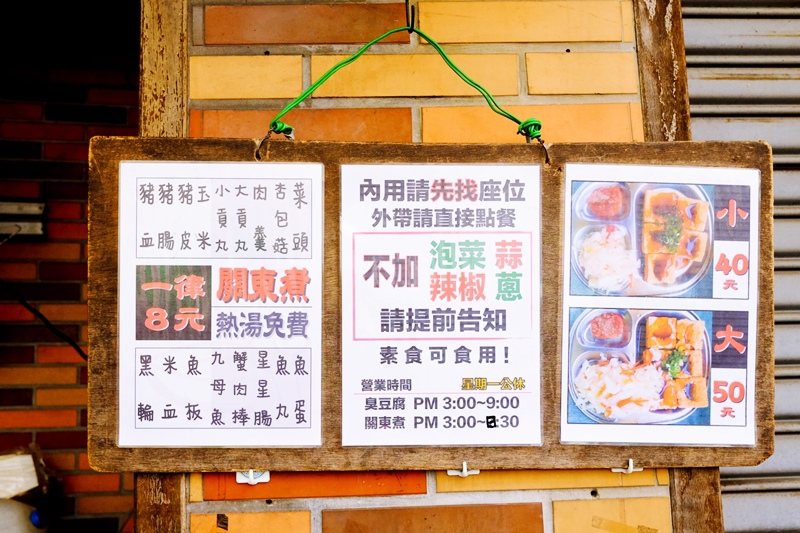 豬血
豬腸
豬皮
玉米
小貢丸
大貢丸
肉羹
杏包菇
菜頭
一律
8元
關東煮
熱湯免費
黑輪
米血
魚板
九母魚
蟹肉棒
星星腸
魚丸
魚蛋
內用請先找座位
外帶請直接點餐
不加
泡菜 蒜
辣椒 蔥
請提前告知
素食可食用!
營業時間 星期一公休
臭豆腐 PM 3:00~9:00
關東煮 PM
小
40
元
大
50
元